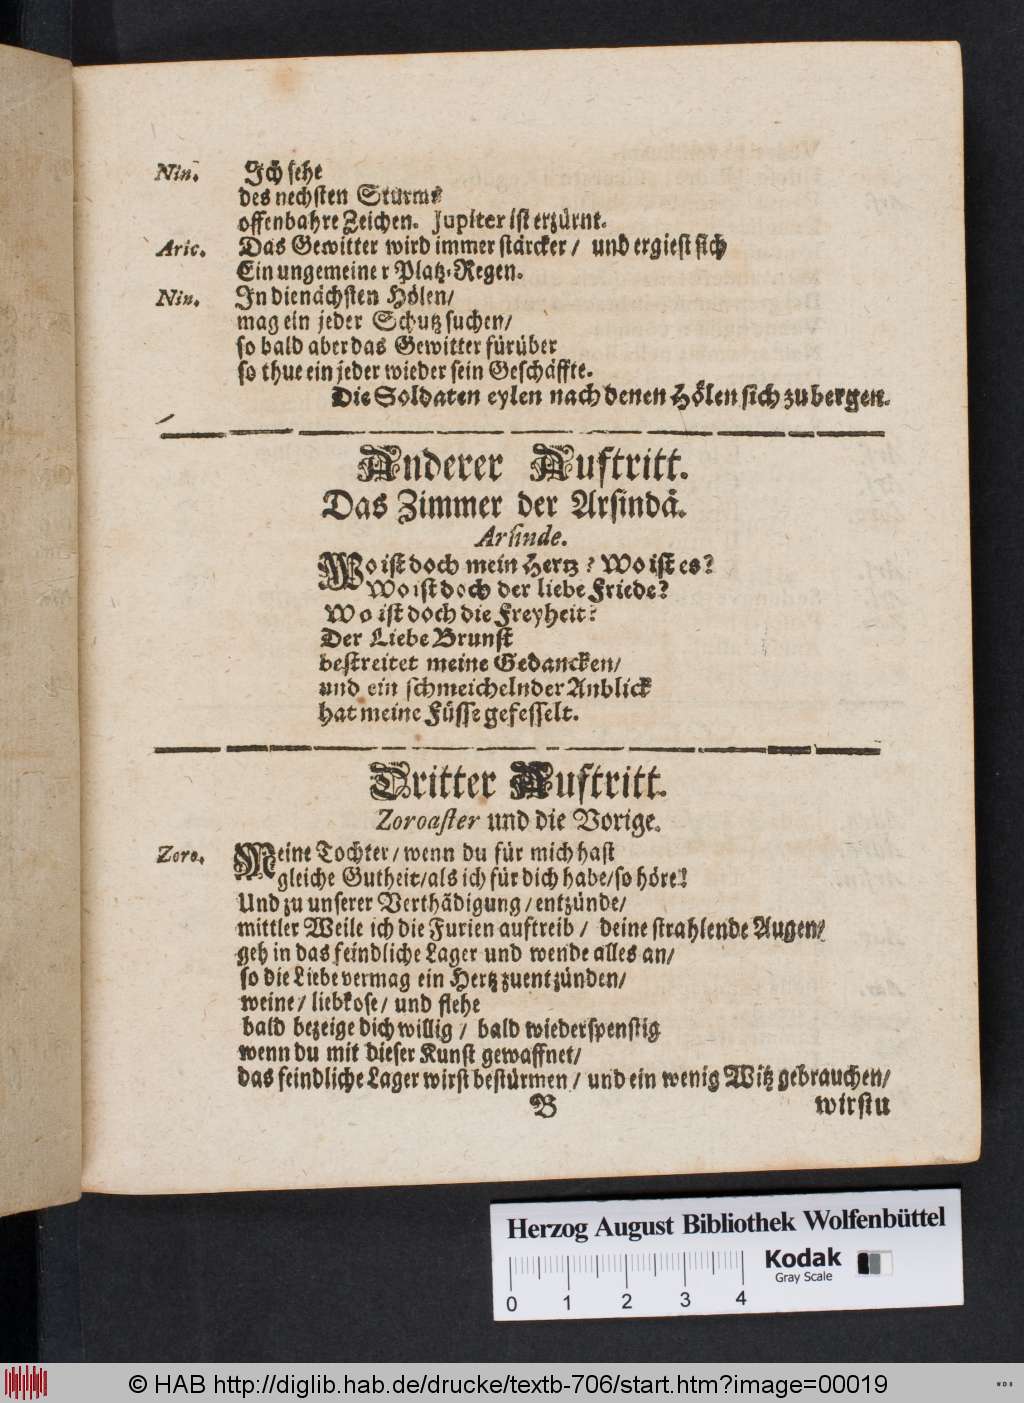 Nin. Ich sehe
des nechsten Sturms
offenbahre Zeichen. Jupiter ist erzürnt.
Aric. Das Gewitter wird immer stärcker / und ergiest sich
Ein ungemeiner Platz-Regen.
Nin. In die nächsten Hölen/
mag ein jeder Schutz suchen/
so bald aber das Gewitter fürüber
so thue ein jeder wieder sein Geschäffte.
Die Soldaten eylen nach denen Hölen sich zu bergen.
Anderer Auftritt.
Das Zimmer der Arsindä.
Arsinde.
Wo ist doch mein Hertz? Wo ist es?
Wo ist doch der liebe Friede?
Wo ist doch die Freyheit?
Der Liebe Brunst
bestreitet meine Gedancken/
und ein schmeichelnder Anblick
hat meine Füsse gefesselt.
Dritter Auftritt.
Zoroaster und die Vorige.
Zoro. Meine Tochter/ wenn du für mich hast
gleiche Gutheit/als ich für dich habe/so höre!
Und zu unserer Verthädigung/ entzünde/
mittler Weile ich die Furien auftreib / deine strahlende Augen/
geh in das feindliche Lager und wende alles an/
so die Liebe vermag ein Hertz zuentzünden/
weine/ liebkose/ und flehe
bald bezeige dich willig / bald wiederspenstig
wenn du mit dieser Kunst gewaffnet/
das feindliche Lager wirst bestürmen/ und ein wenig Witz gebrauchen/
B wirstu
Herzog August Bibliothek Wolfenbüttel
Kodak
Gray Scale
0 1 2 3 4
© HAB http://diglib.hab.de/drucke/textb-706/start.htm?image=00019